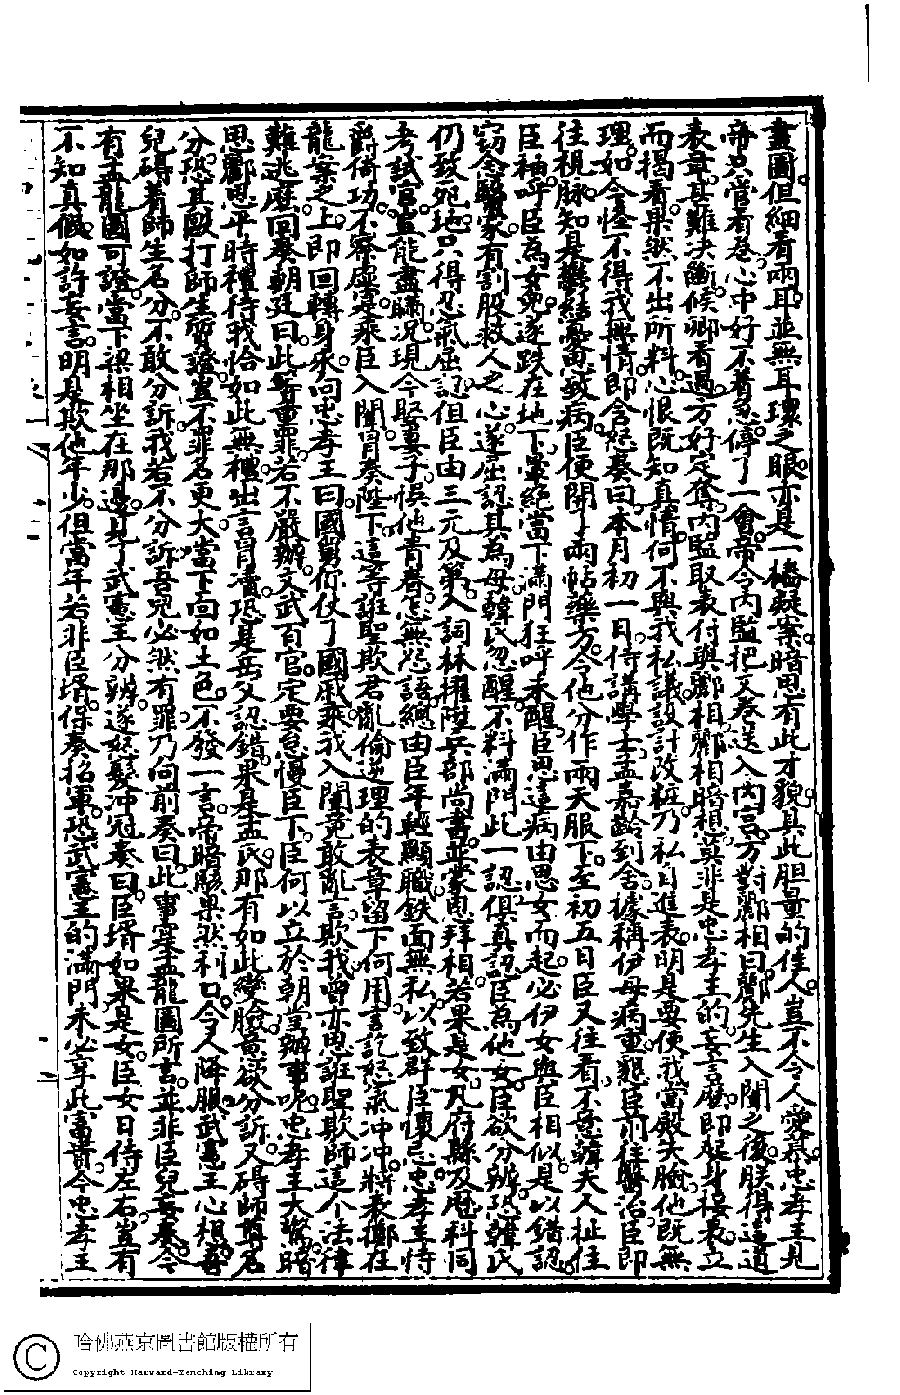 畫圖但細看兩耳並無耳環之眼亦是一樁疑案暗思有此才貌具此胆量的佳人豈不令人愛慕忠孝王見
帝只管看卷心中好不着忍停了一會帝令內監把文卷送入內宮方對酈相曰酈先生入闈之後朕得這道
表章甚難決斷候卿看過方好定奪內監取表付與酈相酈相暗想莫非是忠孝王的妄言麽即起身接表立
而揭看果然不出所料心恨既知真情何不與我私議設計改粧乃私自進表明是要使我當殿失臉他既無
理如今怪不得我無情即含怒奏曰本月初一日侍講學士孟嘉齡到舍據稱伊母病重懇臣前往醫治臣即
往視脉知是鬱結憂思致病臣便開了兩帖藥方令他分作兩天服下至初五日臣又往看不意韓夫人扯住
臣袖呼臣為女兒遂跌在地下暈絕當下滿門狂呼未醒臣思這病由思女而起必伊女與臣相似是以錯認
竊念醫家有割股救人之心遂屈認其為母韓氏忽醒不料滿門此一認俱真認臣為他女臣欲分辨恐韓氏
仍致宛地只得忍氣屈認但臣由三元及第入詞林擢陞兵部尚書並蒙恩拜相若果是女凡府縣及歷科同
考試官豈能盡瞞况現今娶妻子悞他青春怎無怨語總由臣年輕顯職鉄面無私以致群臣懷忌忠孝王恃
爵倚功不察虛寔乘臣入闈冐奏陛下這等誑聖欺君亂倫逆理的表章留下何用言訖怒氣冲冲將表擲在
龍案之上即回轉身來向忠孝王曰國舅你仗了國戚乘我入闈竟敢亂言欺我曾亦思誑聖欺師這个法律
難逃麽回奏朝廷曰此等重罪若不嚴辦文武百官定要怠慢臣下臣何以立於朝堂辦事呢忠孝王大驚暗
思酈恩平時禮待我恰如此無禮出言冐瀆恐是岳父認錯果是孟氏那有如此變臉意欲分訴又碍師尊名
分恐其毆打師生質證豈不罪名更大當下面如土色不發一言帝暗駭果然利口令人降服武憲王心想吾
兒碍着師生名分不敢分訴我若不分訴吾兒必然有罪乃向前奏曰此事寔孟龍圖所言並非臣兒妄奏今
有孟龍圖可證當下梁相坐在那邊見了武憲王分辨遂怒髮冲冠奏曰臣壻如果是女臣女日侍左右豈有
不知真假如許妄言明是欺他年少但當年若非臣壻保奏招軍恐武憲王的滿門未必享此富貴今忠孝王
哈佛燕京圖書館版權所有
Copyright Harvard-Yenching Library